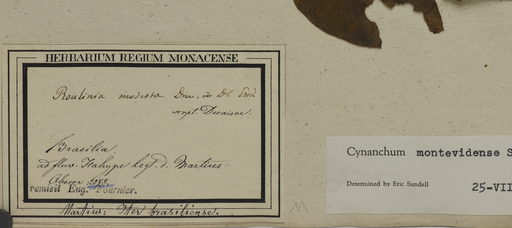 HERBARIUM REGIUM MONACENSE
Roulinia modesta Dne. in D.C. Prod
scrpt. Decaisne.
Brasilia.
ad fluv. Itahype legt. d. Martius
remisit Eug. Fournier.
Martius: Iter brasiliense.
Cynanchum montevidense S
Determined by Eric Sundell
25-VII